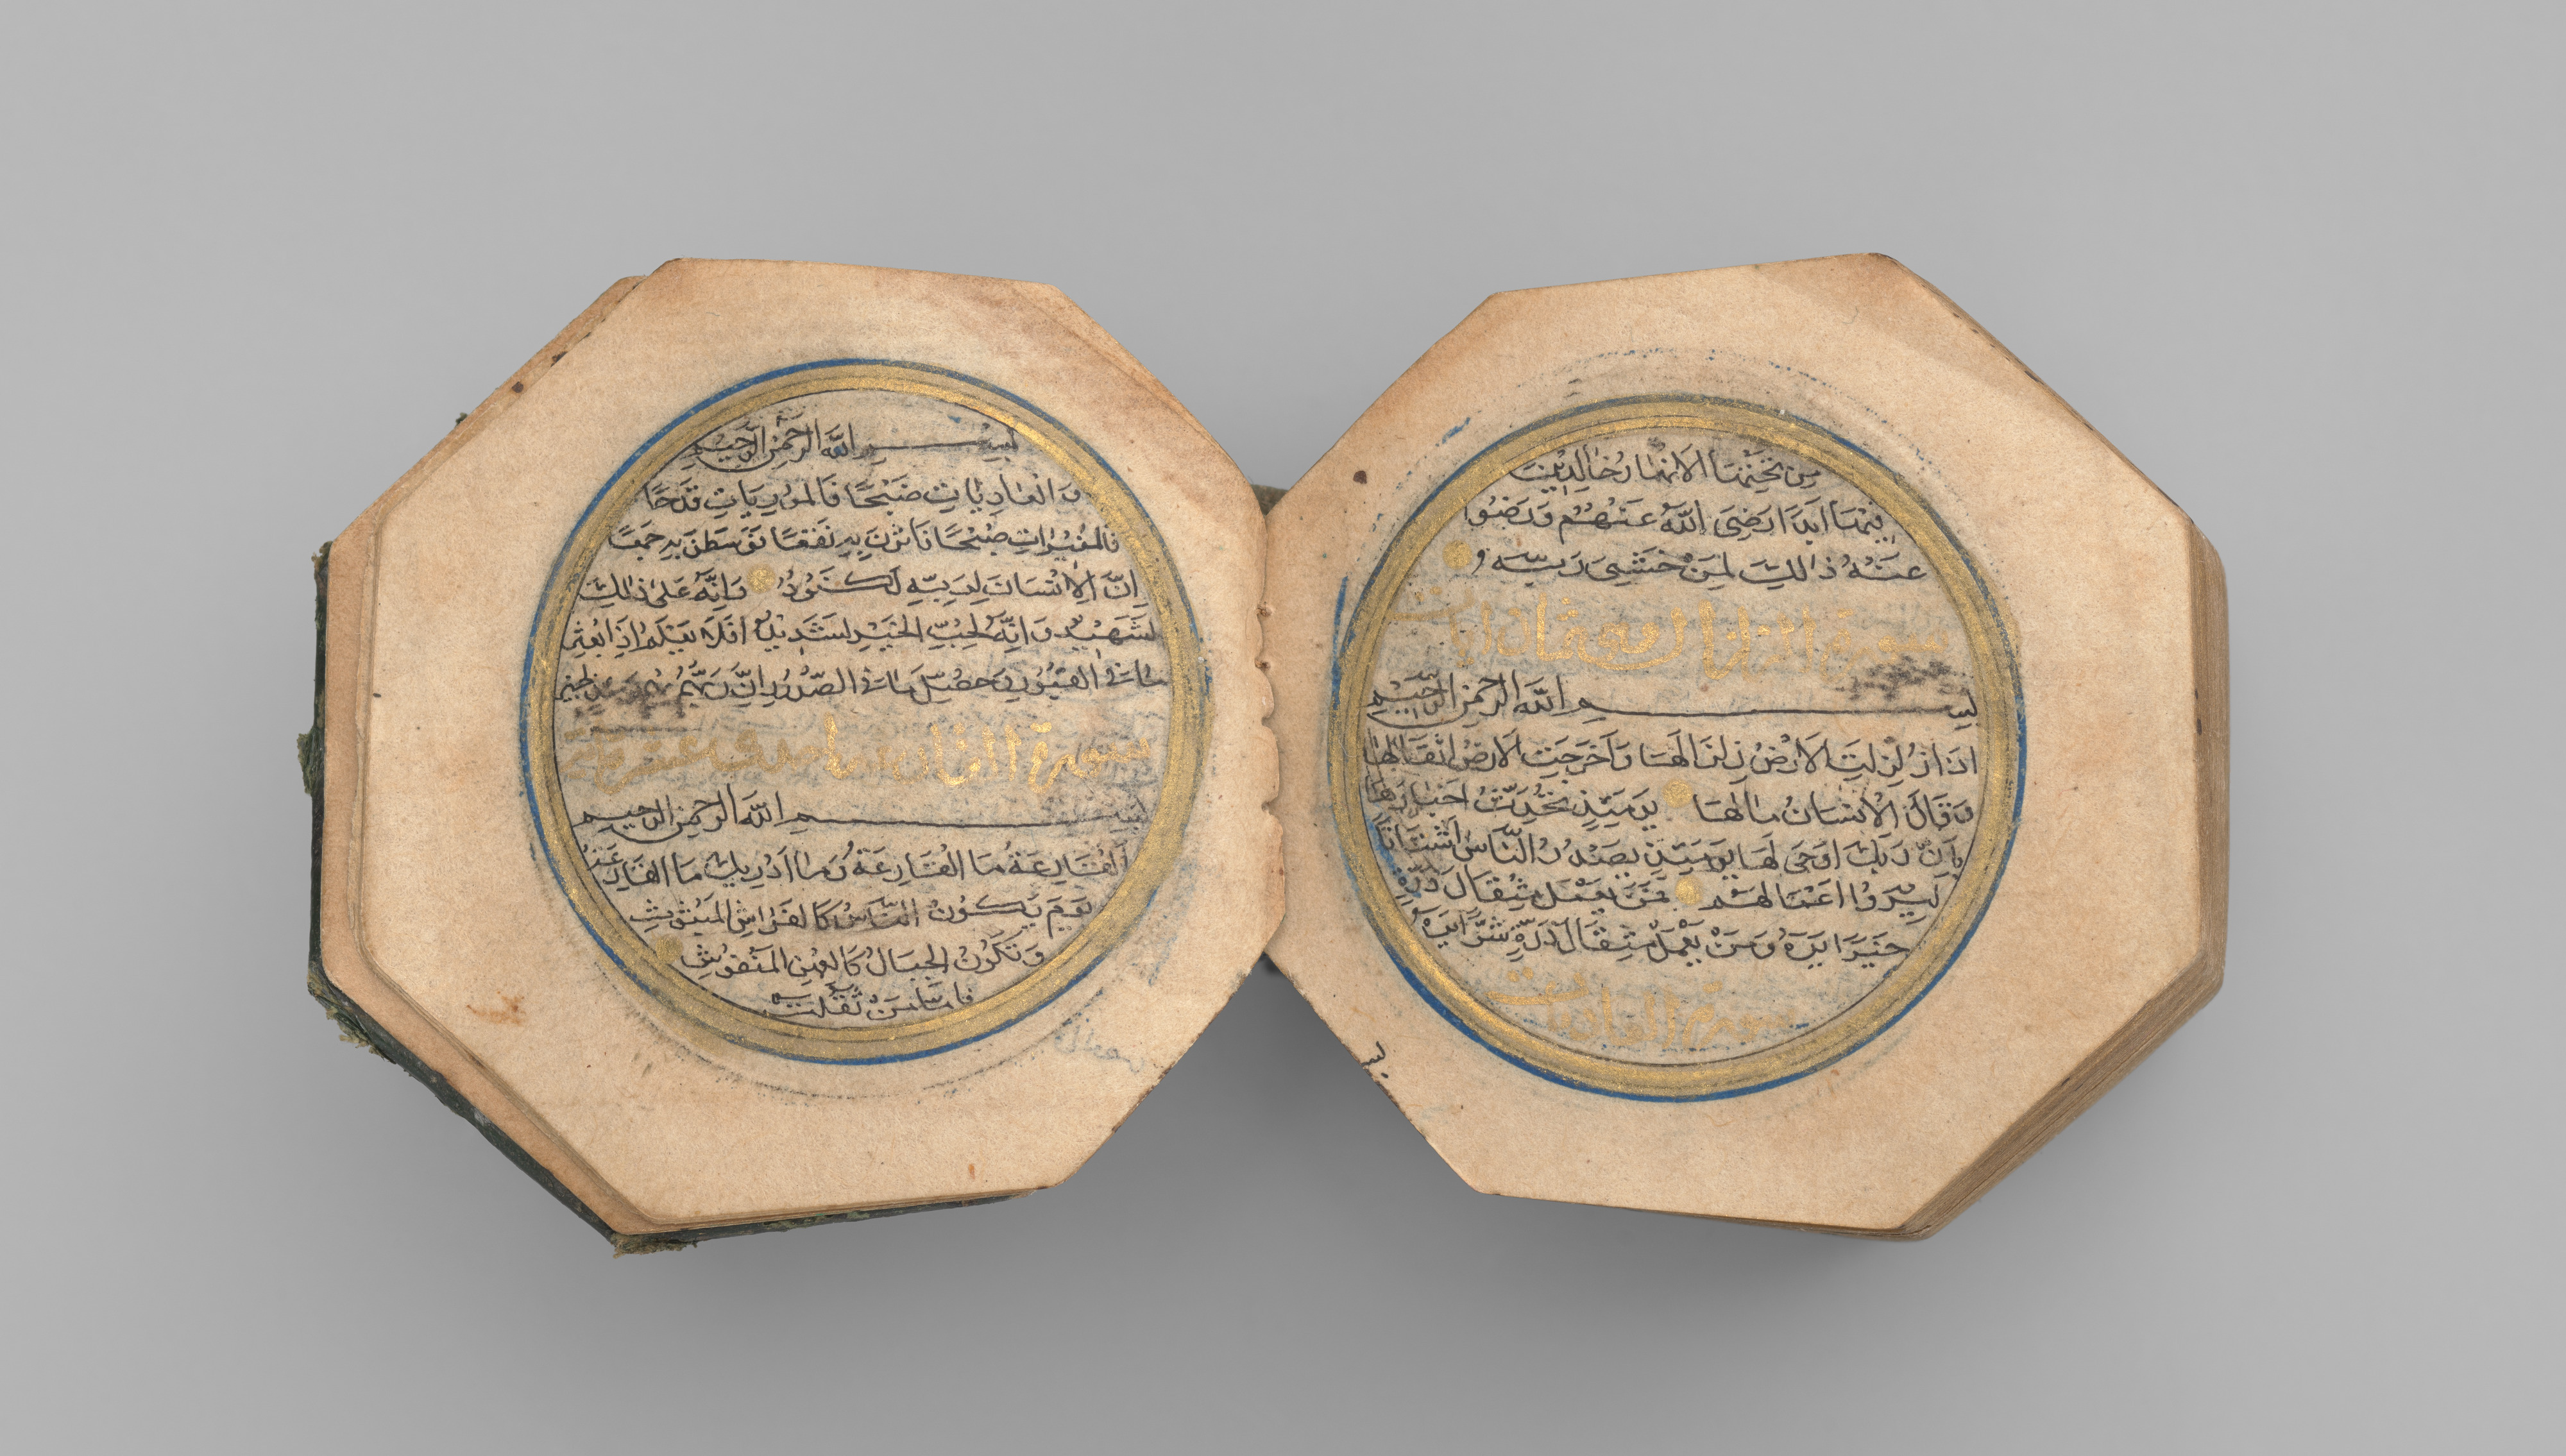 من تحتها الانهار خالدين
فيها ابدا رضى الله عنهم ورضوا
عنه ذلك لمن خشى ربه
سورة الزلزلة ثمان ايات
بسم الله الرحمن الرحيم
اذا زلزلت الارض زلزالها واخرجت الارض اثقالها
وقال الانسان مالها يومئذ تحدث اخبارها
بان ربك اوحى لها يومئذ يصدر الناس اشتاتا
ليروا اعمالهم فمن يعمل مثقال ذرة
خيرا يره ومن يعمل مثقال ذرة شرا يره
سورة العاديات
بسم
بسم الله الرحمن الرحيم
والعاديات ضبحا فالموريات قدحا
فالمغيرات صبحا فاثرن به نقعا فوسطن به جمعا
ان الانسان لربه لكنود وانه على ذلك
لشهيد وانه لحب الخير لشديد افلا يعلم اذا بعثر
ما فى القبور وحصل ما فى الصدور ان ربهم بهم يومئذ لخبير
سورة القارعة احدى عشر
بسم الله الرحمن الرحيم
القارعة ما القارعة وما ادريك ما القارعة
يوم يكون الناس كالفراش المبثوث
وتكون الجبال كالعهن المنفوش
فاما من ثقلت